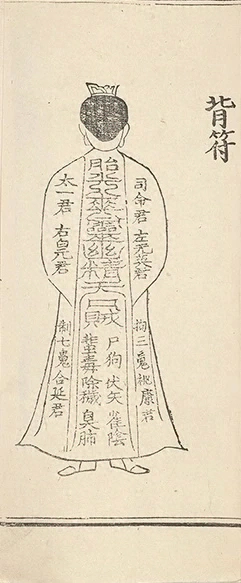 背符
司命君 左无英君
拘三魂桃康君
胎光爽靈幽精吞賊
尸狗伏矢雀陰
蜚毒除穢臭肺
太一君 右白元君
制七魄合延君